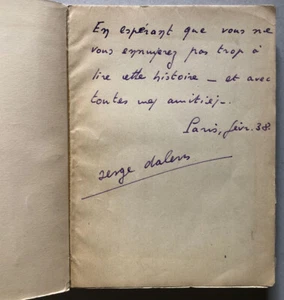 En espérant que vous ne
vous ennuyerez pas trop à
lire cette histoire – et avec
toutes mes amitiés.
Paris, févr. 38.
serge